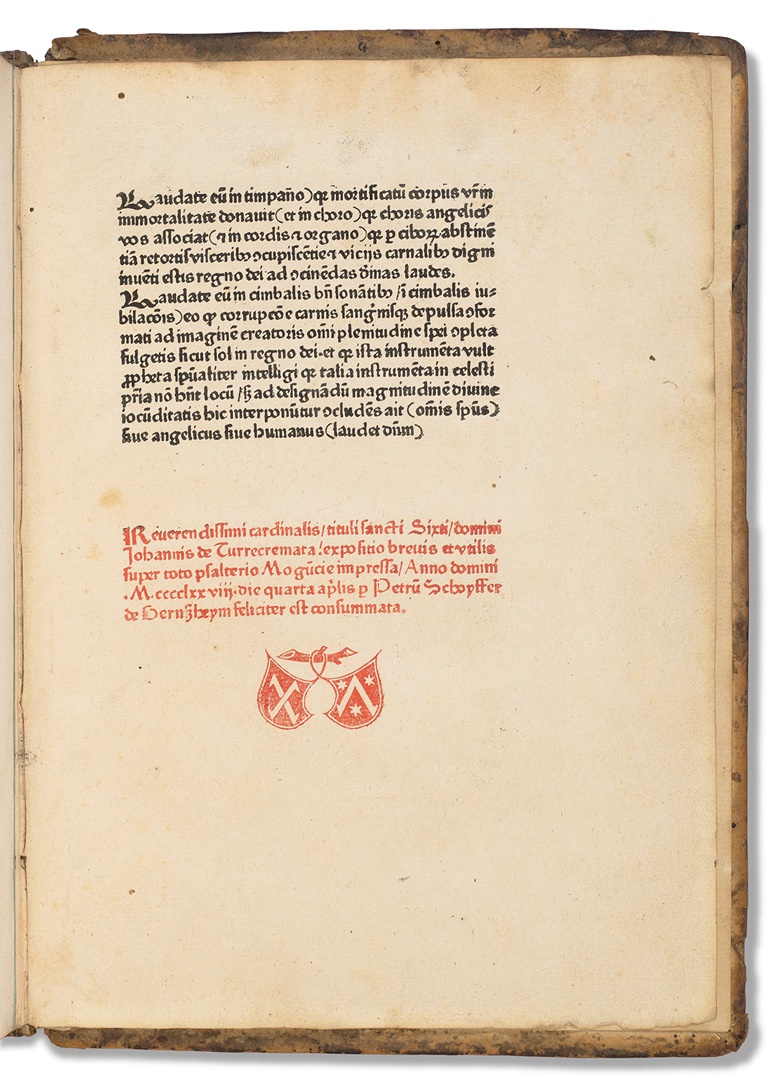 Laudate eū in timpano) qꝛ mortificatū corpus vr̄m
immortalitate donauit (et in choro) qꝛ choris angelicis
vos associat (⁊ in cordis ⁊ organo) qꝛ ꝑ ciboꝝ abstinē
tiā retortis visceribꝰ ꝯcupiscētie ⁊ vicijs carnalibꝰ digni
inuēti estis regno dei ad ꝯcinēdas diuinas laudes.
Laudate eū in cimbalis bn̄ sonātibꝰ / ī cimbalis iu-
bilacōis) eo qꝙ corrupcōe carnis sangnīsqꝫ depulsa ꝯfor
mati ad imaginē creatoris om̄i plenitudine spei ꝯpleta
fulgetis sicut sol in regno dei. et qꝛ ista instrumēta vult
ꝓpheta spūaliter intelligi qꝛ talia instrumēta in celesti
pr̄ia nō hn̄t locū / sꝫ ad designādū magnitudinē diuine
iocūditatis hic interponūtur ꝯcludēs ait (om̄is spūs)
siue angelicus siue humanus (laudet dn̄m)
Reuerendissimi cardinalis / tituli sancti Sixti / domini
Iohannis de Turrecremata / expositio breuis et vtilis
super toto psalterio Mogūcie impressa / Anno domini
.M.cccclxxviij. die quarta apͥlis ꝑ Petrū Schoyffer
de Gernsꝫheym feliciter est consummata.